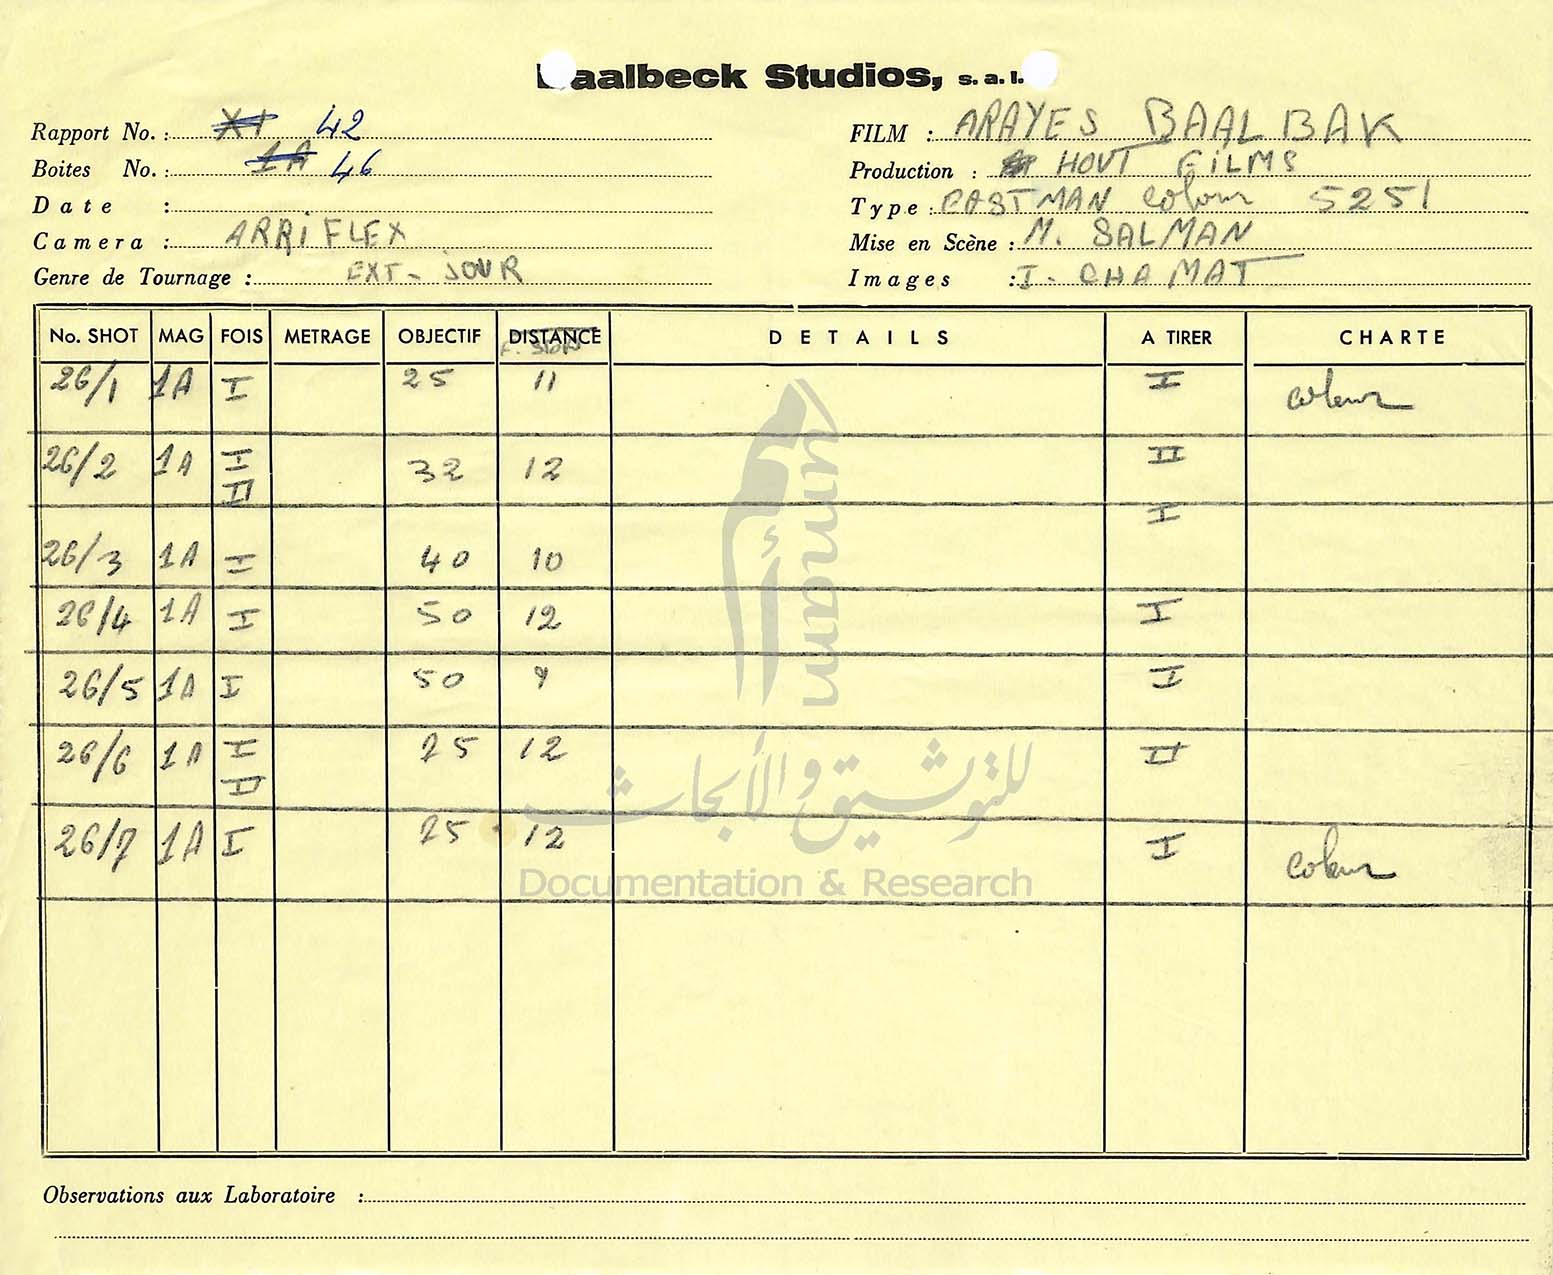 aalbeck Studios, s.a.l.
Rapport No. : 42
Boites No. : 1A 46
Date :
Camera : ARRIFLEX
Genre de Tournage : EXT - JOUR
FILM : ARAYES BAALBAK
Production : HOUT FILMS
Type : EASTMAN Colour 5251
Mise en Scène : M. SALMAN
Images : I - CHAMAT
No. SHOT MAG FOIS METRAGE OBJECTIF DISTANCE DETAILS A TIRER CHARTE
F. STOP
26/1 1A I 25 11 I colour
26/2 1A I 32 12 II
II
26/3 1A I 40 10 I
26/4 1A I 50 12 I
26/5 1A I 50 9 I
26/6 1A I 25 12 II
II
26/7 1A I 25 12 I colour
umam
أم
للتوثيق و الأبحاث
Documentation & Research
Observations aux Laboratoire :